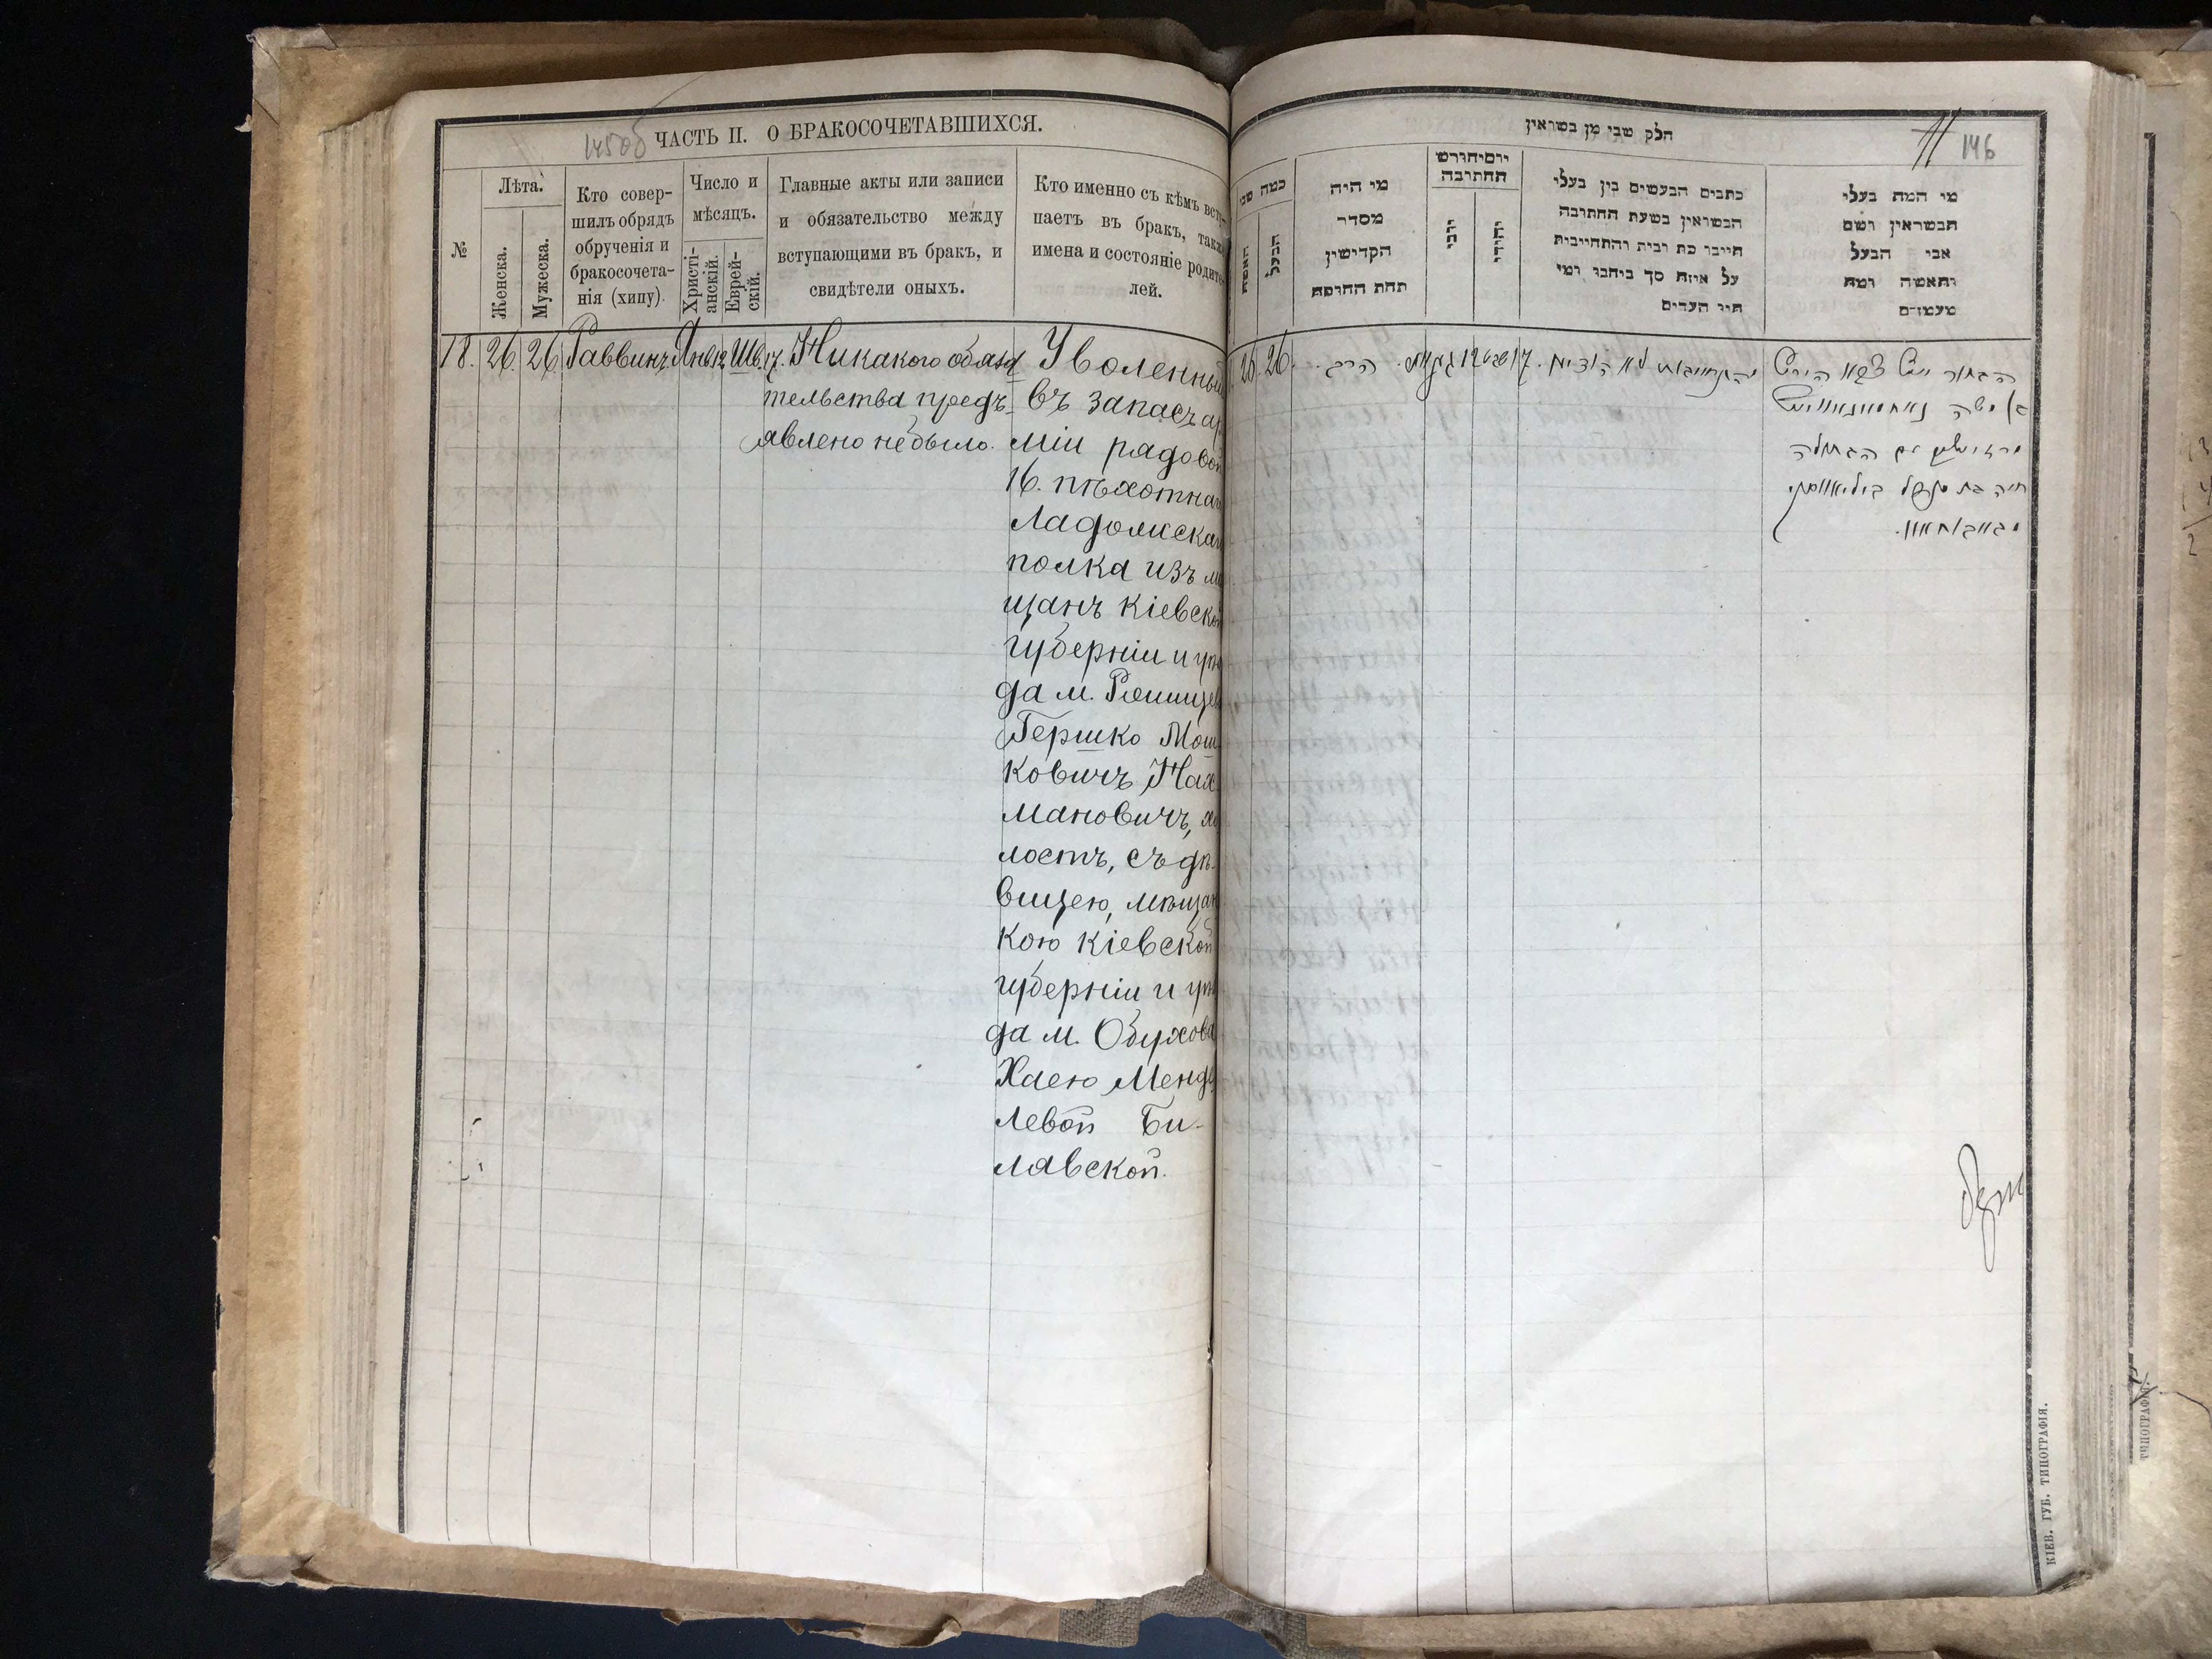 145об
ЧАСТЬ II. О БРАКОСОЧЕТАВШИХСЯ.
№
Лѣта.
Женска.
Мужеска.
Кто совер-
шилъ обрядъ
обрученія и
бракосочета-
нія (хипу).
Число и
мѣсяцъ.
Христі-
анскій.
Еврей-
скій.
Главные акты или записи
и обязательство между
вступающими въ бракъ, и
свидѣтели оныхъ.
Кто именно съ кѣмъ всту-
паетъ въ бракъ, также
имена и состояніе родите-
лей.
18. 26. 26. Раввинъ. Янв. 12. Шв. 17.
Никакого обяза
тельства предъ-
явлено не было.
Уволенный
въ запасъ ар
міи рядовой
16. пѣхотнаг
Ладожскаг
полка изъ мѣ
щанъ Кіевской
губерніи и уѣз
да м. Ржищев
Гершко Мош
ковичъ Нах
мановичъ, хо
лостъ, съ дѣ-
вицею, мѣщан
кою Кіевской
губерніи и уѣз
да м. Обухова
Хаею Менде
левой Би-
лявской.
חלק שני מן נשואין
11 146
כמה שני
האשה
הבעל
מי היה
מסדר
הקדישין
תחת החופה
יום וחודש
החתונה
יוני
יהודי
כתבים הנעשים בין בעלי
הנשואין בשעת החתונה
חיובי כת ובית והתחייבות
על איזה סך ביחבו ומי
היו העדים
מי המה בעלי
הנשואין ושם
אבי הבעל
והאשה ומה
מעמדם
26. 26.
הרב
12
17.
הבחור
הירש
בן משה
עם הבתולה
חיה בת מענדל
КІЕВ. ГУБ. ТИПОГРАФІЯ.
ТИПОГРАФІЯ.